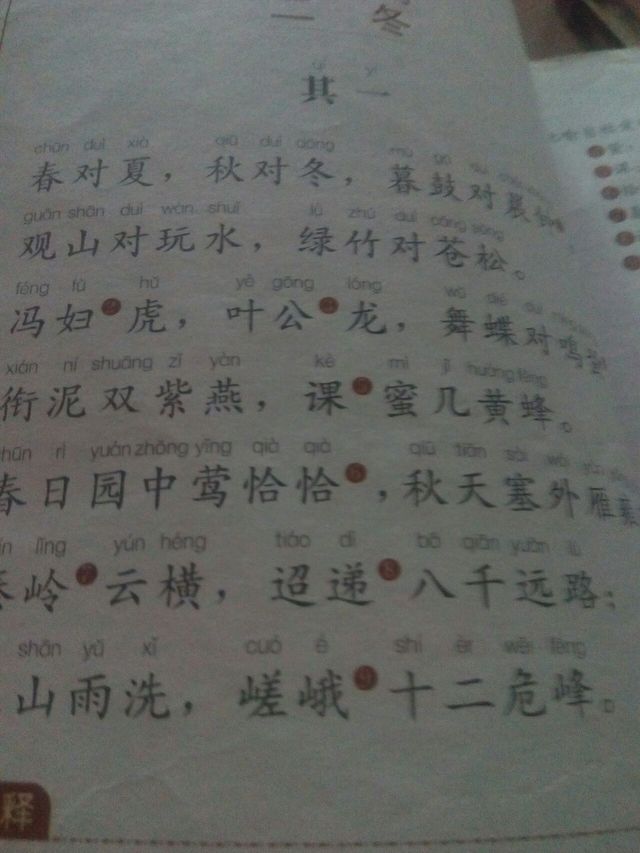 二 冬
其一
chūn duì xià qiū duì dōng
春对夏，秋对冬，暮鼓对晨
guān shān duì wán shuǐ lǜ zhú duì cāng sōng
观山对玩水，绿竹对苍松。
féng fù hǔ yè gōng lóng
冯妇虎，叶公龙，舞蝶对鸣
xián ní shuāng zǐ yàn kè mì jǐ huáng fēng
衔泥双紫燕，课蜜几黄蜂。
rì yuán zhōng yīng qià qià qiū tiān sài wài
春日园中莺恰恰，秋天塞外雁
lǐng yún héng tiáo dì bā qiān yuǎn lù
岭云横，迢递八千远路；
shān yǔ xǐ cuó é shí èr wēi fēng
山雨洗，嵯峨十二危峰。
释